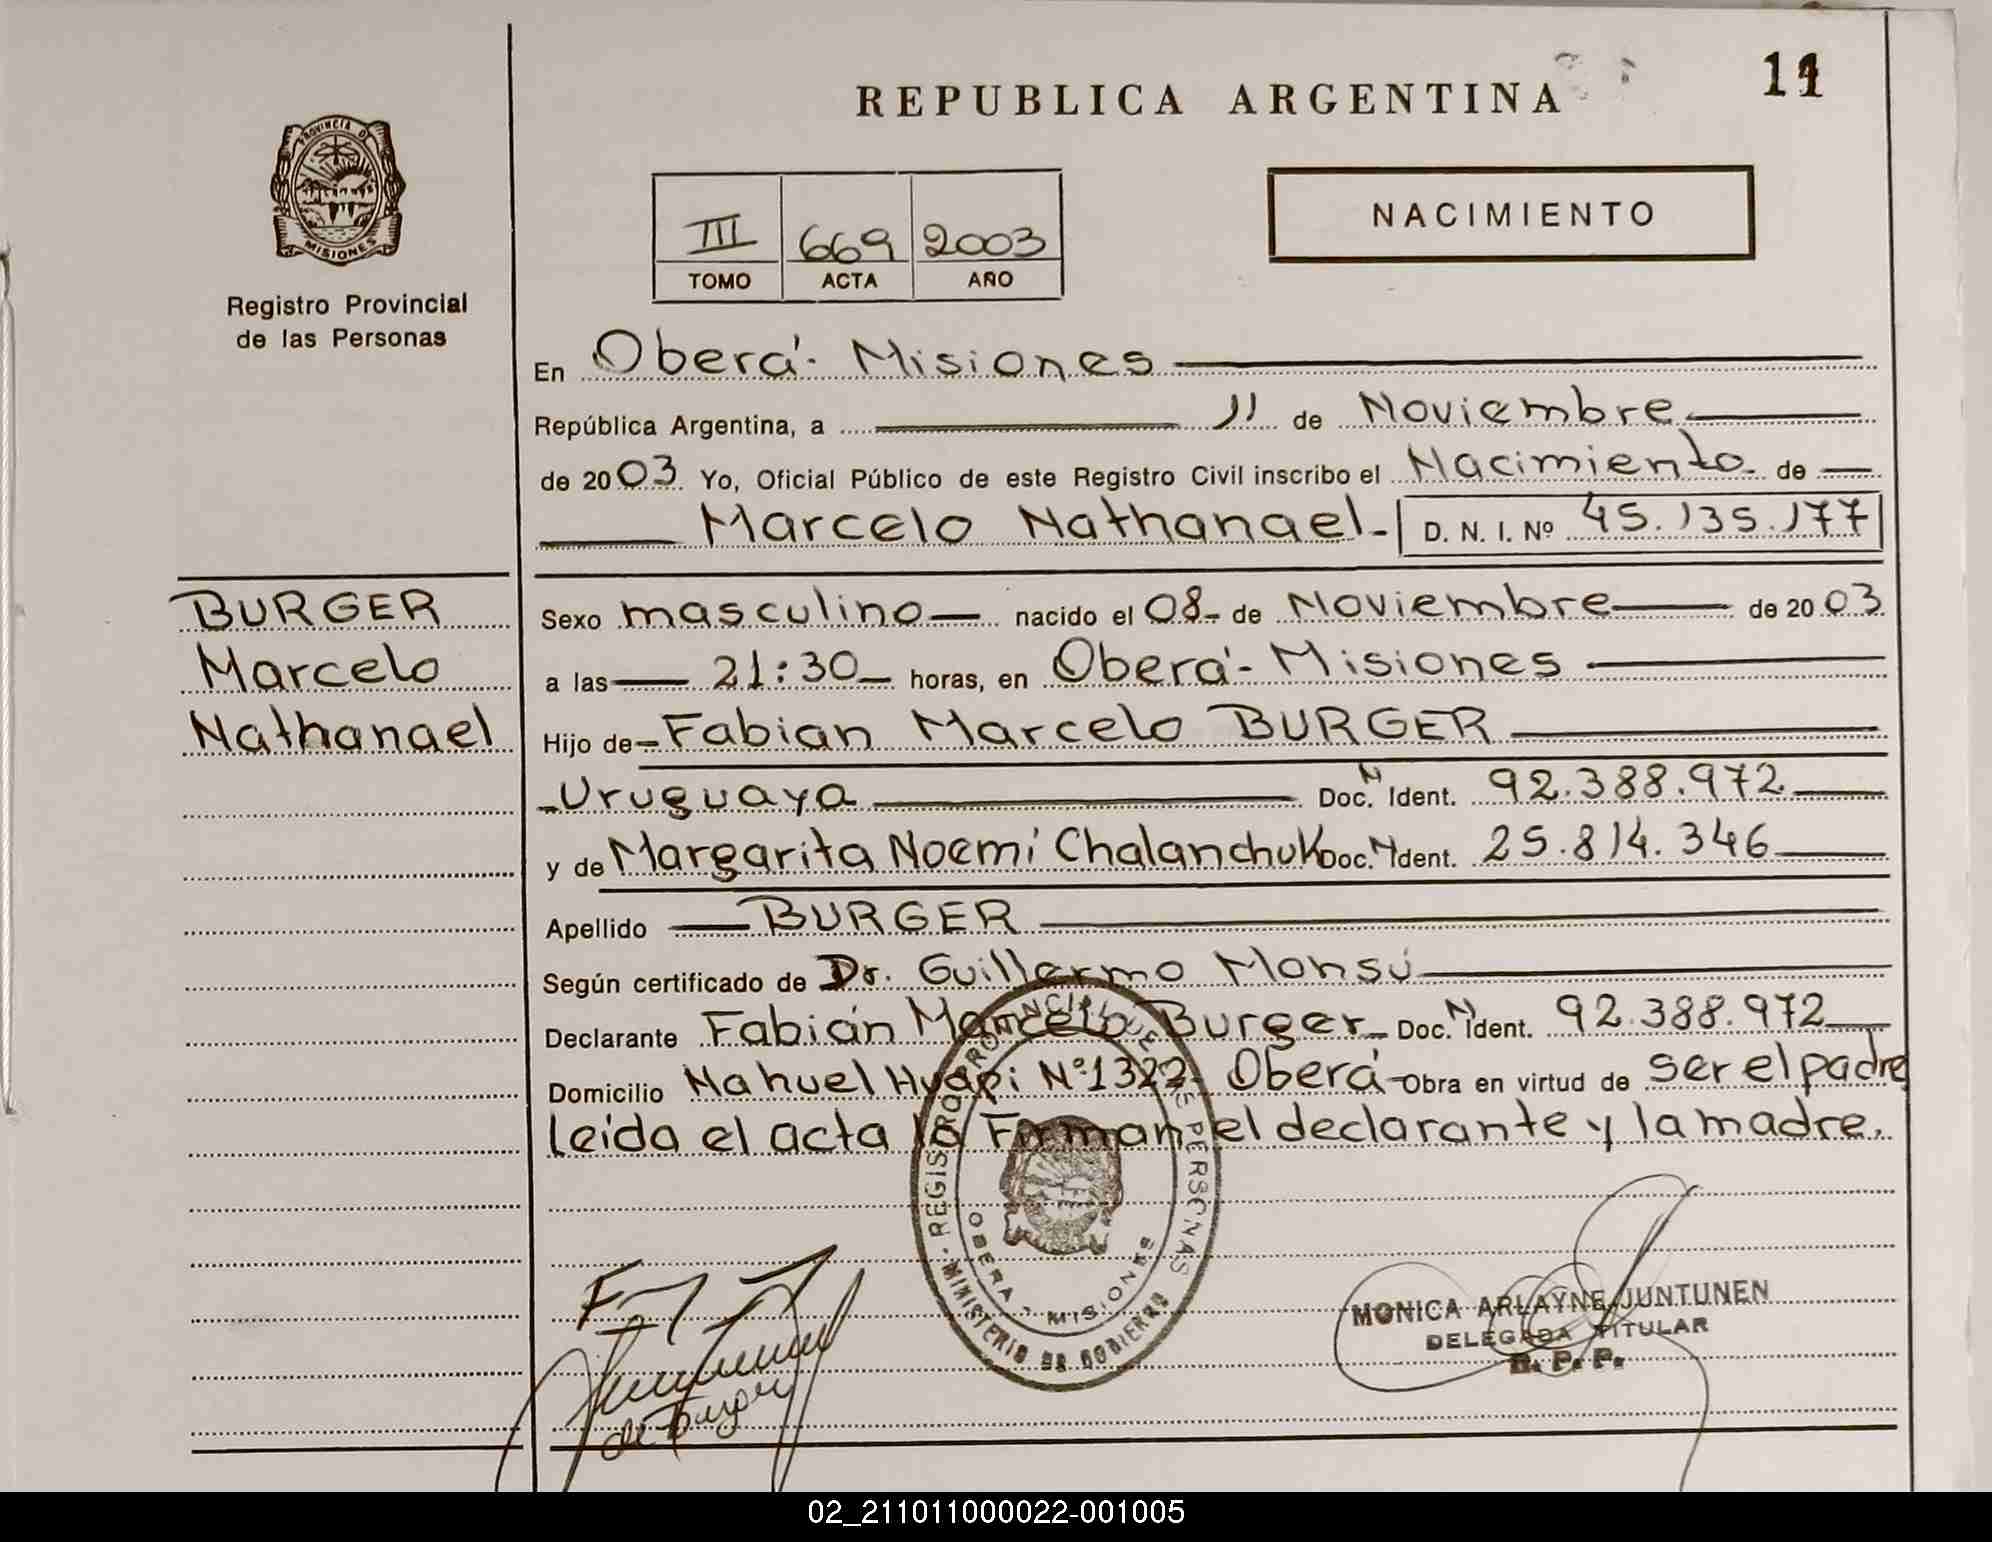 REPUBLICA ARGENTINA
PROVINCIA DE
MISIONES
Registro Provincial
de las Personas
III 669 2003
TOMO ACTA AÑO
NACIMIENTO
En Oberá - Misiones
República Argentina, a 11 de Noviembre
de 2003 Yo, Oficial Público de este Registro Civil inscribo el Nacimiento de
Marcelo Nathanael - D. N. I. Nº 45.135.177
BURGER
Marcelo
Nathanael
Sexo masculino nacido el 08 - de Noviembre de 2003
a las 21:30 horas, en Oberá - Misiones
Hijo de Fabian Marcelo BURGER
Uruguaya Doc. N Ident. 92.388.972
y de Margarita Noemí Chalanchuk Doc. N Ident. 25.814.346
Apellido BURGER
Según certificado de Dr. Guillermo Monsú
Declarante Fabián Marcelo Burger Doc. N Ident. 92.388.972
Domicilio Nahuel Huapi Nº 1322 - Oberá - Obra en virtud de ser el padre
leída el acta la Firman el declarante y la madre.
REGISTRO PROVINCIAL DE LAS PERSONAS
OBERA - MISIONES
MINISTERIO DE GOBIERNO
MONICA ARLAYNE JUNTUNEN
DELEGADA TITULAR
R. P. P.
de Burger
02_211011000022-001005